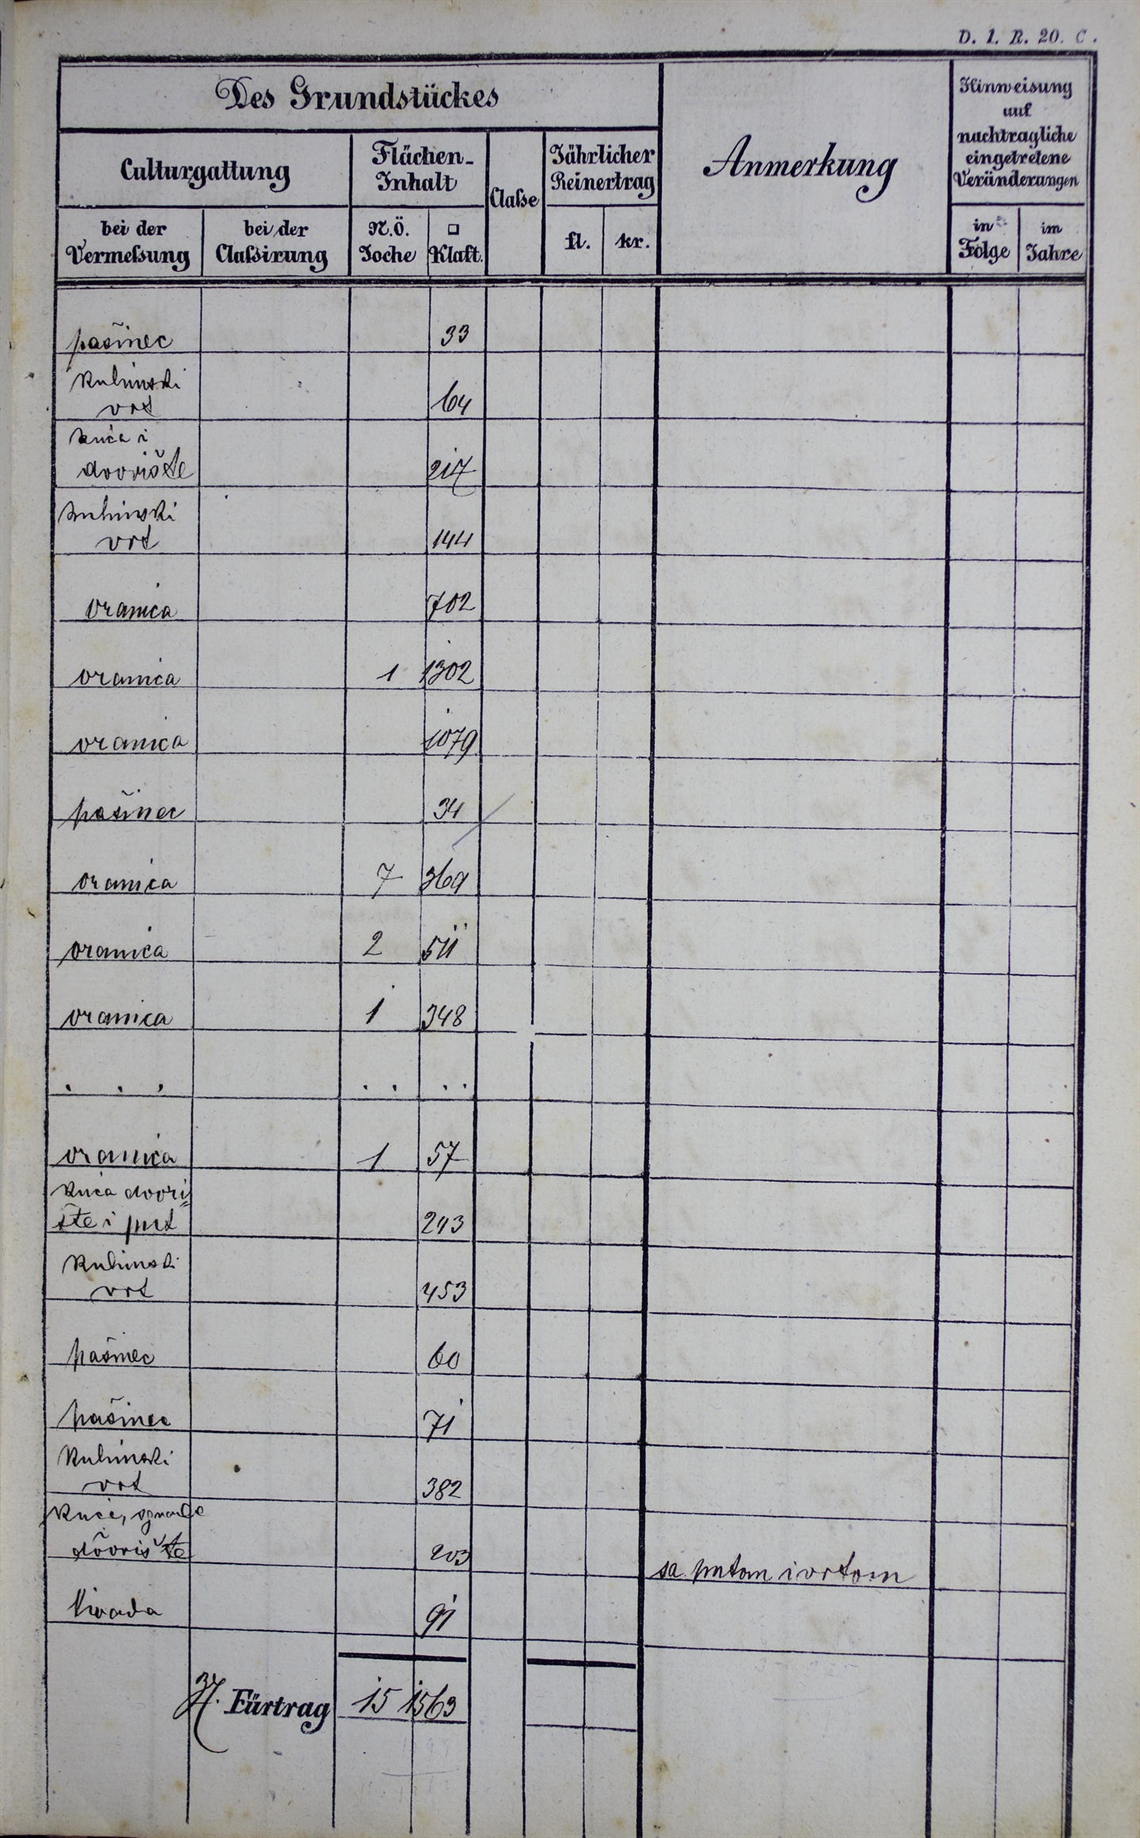 D. 1. R. 20. C.
Des Grundstückes
Culturgattung
Flächen-
Inhalt
Claße
Jährlicher
Reinertrag
Anmerkung
Hinweisung
auf
nachtragliche
eingetretene
Veränderungen
bei der
Vermeßung
bei der
Claßirung
N.Ö.
Joche
□
Klaft.
fl.
kr.
in
Folge
im
Jahre
pašinec 33
kuhinski
vrt 64
kuća i
dvorište 217
kuhinski
vrt 144
oranica 702
oranica 1 1302
oranica 1079
pašinec 34
oranica 7 369
oranica 2 511
oranica 1 348
. . . . . . .
oranica 1 57
kuća dvori
šte i put 243
kuhinski
vrt 453
pašinec 60
pašinec 71
kuhinski
vrt 382
kuće,
dvorište 203 sa putom i vrtom
livada 91
37. Fürtrag 15 1563